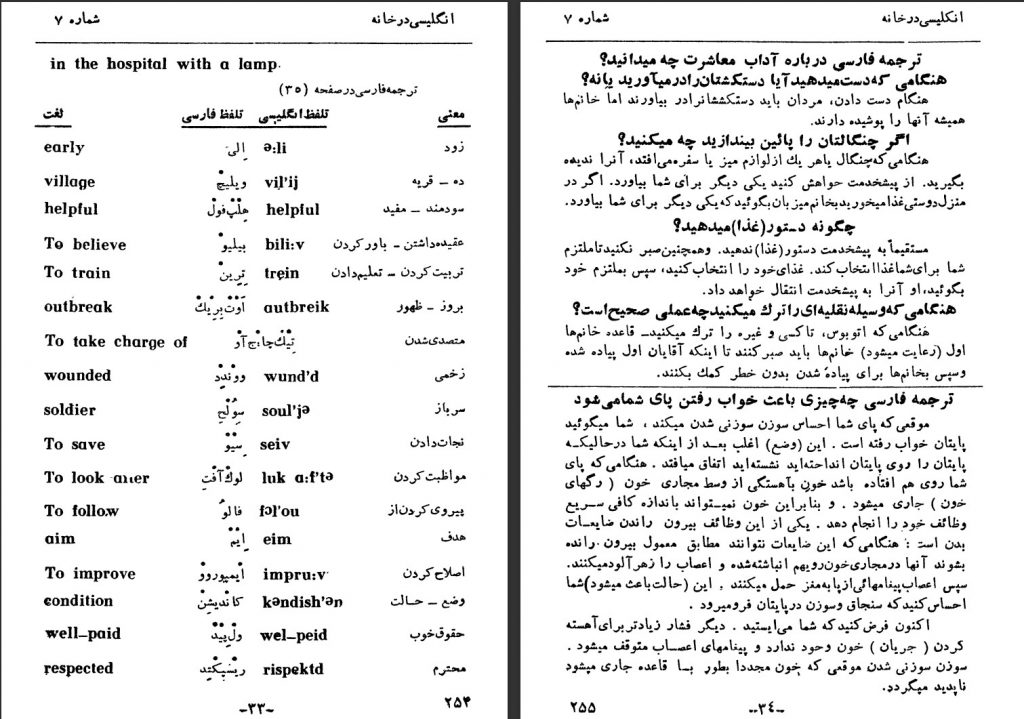 انگلیسی در خانه شماره ۷
in the hospital with a lamp.
ترجمه فارسی در صفحه (۳۵)
لغت تلفظ فارسی تلفظ انگلیسی معنی
early اِلی ə:li زود
village ویلیجْ vil'ij ده ــ قریه
helpful هِلْپْ‌فولْ helpful سودمند ــ مفید
To believe بیلیوْ bili:v عقیده‌داشتن ــ باورکردن
To train تِرینْ trein تربیت‌کردن ــ تعلیم‌دادن
outbreak آوْتْ‌بِرِیْكْ autbreik بروز ــ ظهور
To take charge of تِیْكْ‌چا:جْ‌آوْ متصدی‌شدن
wounded ووندِد wund'd زخمی
soldier سوُلْجِ soul'jə سرباز
To save سِیْوْ seiv نجات‌دادن
To look after لوكْ‌آفْتِ luk a:f'tə مواظبت‌کردن
To follow فالوُ fɔl'ou پیروی‌کردن‌از
aim اِیْمْ eim هدف
To improve ایمپروُوْ impru:v اصلاح‌کردن
condition کانْدیشِنْ kəndish'ən وضع ــ حالت
well–paid وِل‌پِیْدْ wel–peid حقوق‌خوب
respected ریسْپِکْتِد rispektd محترم
۲۵۴ -۳۳-
انگلیسی در خانه شماره ۷
ترجمه فارسی درباره آداب معاشرت چه میدانید؟
هنگامی که دست میدهید آیا دستکشتان را در میآورید یا نه؟
هنگام دست دادن، مردان باید دستکششانرا در بیاورند اما خانم‌ها
همیشه آنها را پوشیده دارند.
اگر چنگالتان را پائین بیندازید چه میکنید؟
هنگامی که چنگال یا هر یك از لوازم میز یا سفره می‌افتد، آنرا ندیده
بگیرید. از پیشخدمت خواهش کنید یکی دیگر برای شما بیاورد. اگر در
منزل دوستی غذا میخورید بخانم میزبان بگوئید که یکی دیگر برای شما بیاورد.
چگونه دستور (غذا) میدهید؟
مستقیماً به پیشخدمت دستور (غذا) ندهید. وهمچنین صبر نکنید تا ملتزم
شما برای شما غذا انتخاب کند. غذای خود را انتخاب کنید، سپس بملتزم خود
بگوئید، او آنرا به پیشخدمت انتقال خواهد داد.
هنگامی که وسیله نقلیه‌ای را ترك میکنید چه عملی صحیح است؟
هنگامی که اتوبوس، تاکسی و غیره را ترك میکنید ــ قاعده خانم‌ها
اول (رعایت میشود) خانم‌ها باید صبر کنند تا اینکه آقایان اول پیاده شده
وسپس بخانم‌ها برای پیاده شدن بدون خطر کمك بکنند.
ترجمه فارسی چه چیزی باعث خواب رفتن پای شما می‌شود
موقعی که پای شما احساس سوزن سوزنی شدن میکند ، شما میگوئید
پایتان خواب رفته است . این (وضع) اغلب بعد از اینکه شما درحالیکه
پایتان را روی پایتان انداخته‌اید نشسته‌اید اتفاق میافتد . هنگامی که پای
شما روی هم افتاده باشد خون بآهستگی از وسط مجاری خون ( رگهای
خون ) جاری میشود . و بنابراین خون نمیتواند باندازه کافی سریع
وظائف خود را انجام دهد . یکی از این وظائف بیرون راندن ضایعات
بدن است : هنگامی که این ضایعات نتوانند مطابق معمول بیرون رانده
بشوند آنها درمجاری خون رویهم انباشته شده و اعصاب را زهرآلود میکنند.
سپس اعصاب پیامهائی از پا به مغز حمل میکنند , این (حالت باعث میشود) شما
احساس کنید که سنجاق وسوزن درپایتان فرومیرود .
اکنون فرض کنید که شما می‌ایستید . دیگر فشار زیادتر برای آهسته
کردن ( جریان ) خون وجود ندارد و پیامهای اعصاب متوقف میشود .
سوزن سوزنی شدن موقعی که خون مجددا بطور با قاعده جاری میشود
ناپدید میگردد.
۲۵۵ -۳۴-